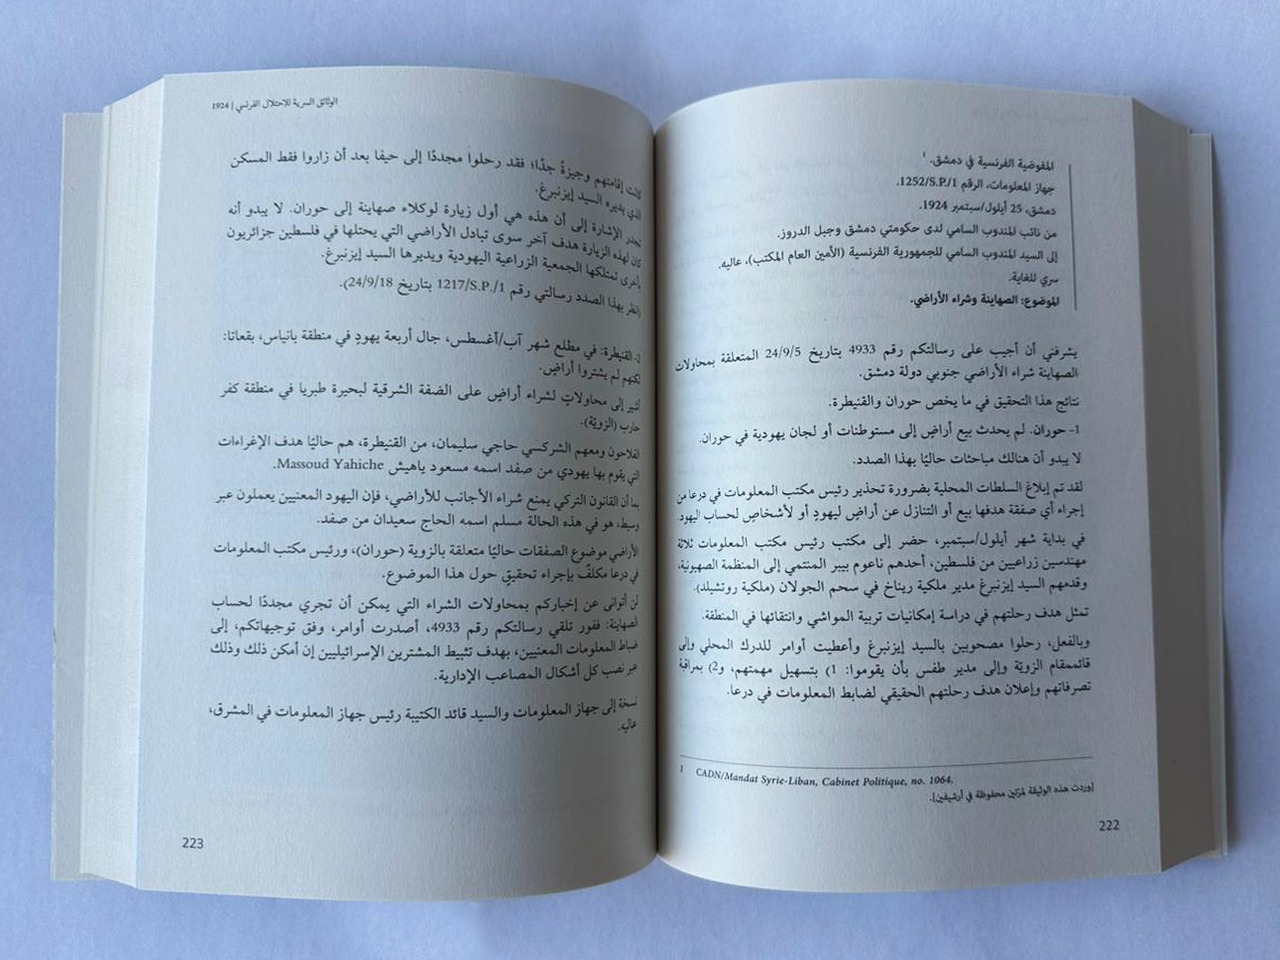 المفوضية الفرنسية في دمشق. ¹
جهاز المعلومات، الرقم 1252/S.P./1.
دمشق، 25 أيلول/سبتمبر 1924.
من نائب المندوب السامي لدى حكومتي دمشق وجبل الدروز.
إلى السيد المندوب السامي للجمهورية الفرنسية (الأمين العام المكتب)، عاليه.
سري للغاية.
الموضوع: الصهاينة وشراء الأراضي.
يشرفني أن أجيب على رسالتكم رقم 4933 بتاريخ 24/9/5 المتعلقة بمحاولات
الصهاينة شراء الأراضي جنوبي دولة دمشق.
نتائج هذا التحقيق في ما يخص حوران والقنيطرة.
1- حوران. لم يحدث بيع أراضٍ إلى مستوطنات أو لجان يهودية في حوران.
لا يبدو أن هنالك مباحثات حاليًا بهذا الصدد.
لقد تم إبلاغ السلطات المحلية بضرورة تحذير رئيس مكتب المعلومات في درعا من
إجراء أي صفقة هدفها بيع أو التنازل عن أراضٍ ليهودٍ أو لأشخاصٍ لحساب اليهود.
في بداية شهر أيلول/سبتمبر، حضر إلى مكتب رئيس مكتب المعلومات ثلاثة
مهندسين زراعيين من فلسطين، أحدهم ناعوم بيير المنتمي إلى المنظمة الصهيونية،
وقدمهم السيد إيزنبرغ مدير ملكية ريناخ في سحم الجولان (ملكية روتشيلد).
تمثل هدف رحلتهم في دراسة إمكانيات تربية المواشي وانتقائها في المنطقة.
وبالفعل، رحلوا مصحوبين بالسيد إيزنبرغ وأعطيت أوامر للدرك المحلي وإلى
قائممقام الزويّة وإلى مدير طفس بأن يقوموا: 1) بتسهيل مهمتهم، و2) بمراقبة
تصرفاتهم وإعلان هدف رحلتهم الحقيقي لضابط المعلومات في درعا.
1 CADN/Mandat Syrie-Liban, Cabinet Politique, no. 1064.
[وردت هذه الوثيقة لمرّتين محفوظة في أرشيفين].
222
الوثائق السرية للاحتلال الفرنسي | 1924
كانت إقامتهم وجيزةً جدًا؛ فقد رحلوا مجددًا إلى حيفا بعد أن زاروا فقط المسكن
الذي يديره السيد إيزنبرغ.
تجدر الإشارة إلى أن هذه هي أول زيارة لوكلاء صهاينة إلى حوران. لا يبدو أنه
كان لهذه الزيارة هدف آخر سوى تبادل الأراضي التي يحتلها في فلسطين جزائريون
بأخرى تمتلكها الجمعية الزراعية اليهودية ويديرها السيد إيزنبرغ.
(انظر بهذا الصدد رسالتي رقم 1217/S.P./1 بتاريخ 24/9/18).
2- القنيطرة: في مطلع شهر آب/أغسطس، جال أربعة يهودٍ في منطقة بانياس، بقعاتا:
لكنهم لم يشتروا أراضٍ.
أشير إلى محاولاتٍ لشراء أراضٍ على الضفة الشرقية لبحيرة طبريا في منطقة كفر
حارب (الزويّة).
الفلاحون ومعهم الشركسي حاجي سليمان، من القنيطرة، هم حاليًا هدف الإغراءات
التي يقوم بها يهودي من صفد اسمه مسعود ياهيش Massoud Yahiche.
بما أن القانون التركي يمنع شراء الأجانب للأراضي، فإن اليهود المعنيين يعملون عبر
وسيط، هو في هذه الحالة مسلم اسمه الحاج سعيدان من صفد.
الأراضي موضوع الصفقات حاليًا متعلقة بالزوية (حوران)، ورئيس مكتب المعلومات
في درعا مكلفٌ بإجراء تحقيقٍ حول هذا الموضوع.
لن أتوانى عن إخباركم بمحاولات الشراء التي يمكن أن تجري مجددًا لحساب
الصهاينة: ففور تلقي رسالتكم رقم 4933، أصدرت أوامر، وفق توجيهاتكم، إلى
ضباط المعلومات المعنيين، بهدف تثبيط المشترين الإسرائيليين إن أمكن ذلك وذلك
عبر نصب كل أشكال المصاعب الإدارية.
نسخة إلى جهاز المعلومات والسيد قائد الكتيبة رئيس جهاز المعلومات في المشرق،
عاليه.
223